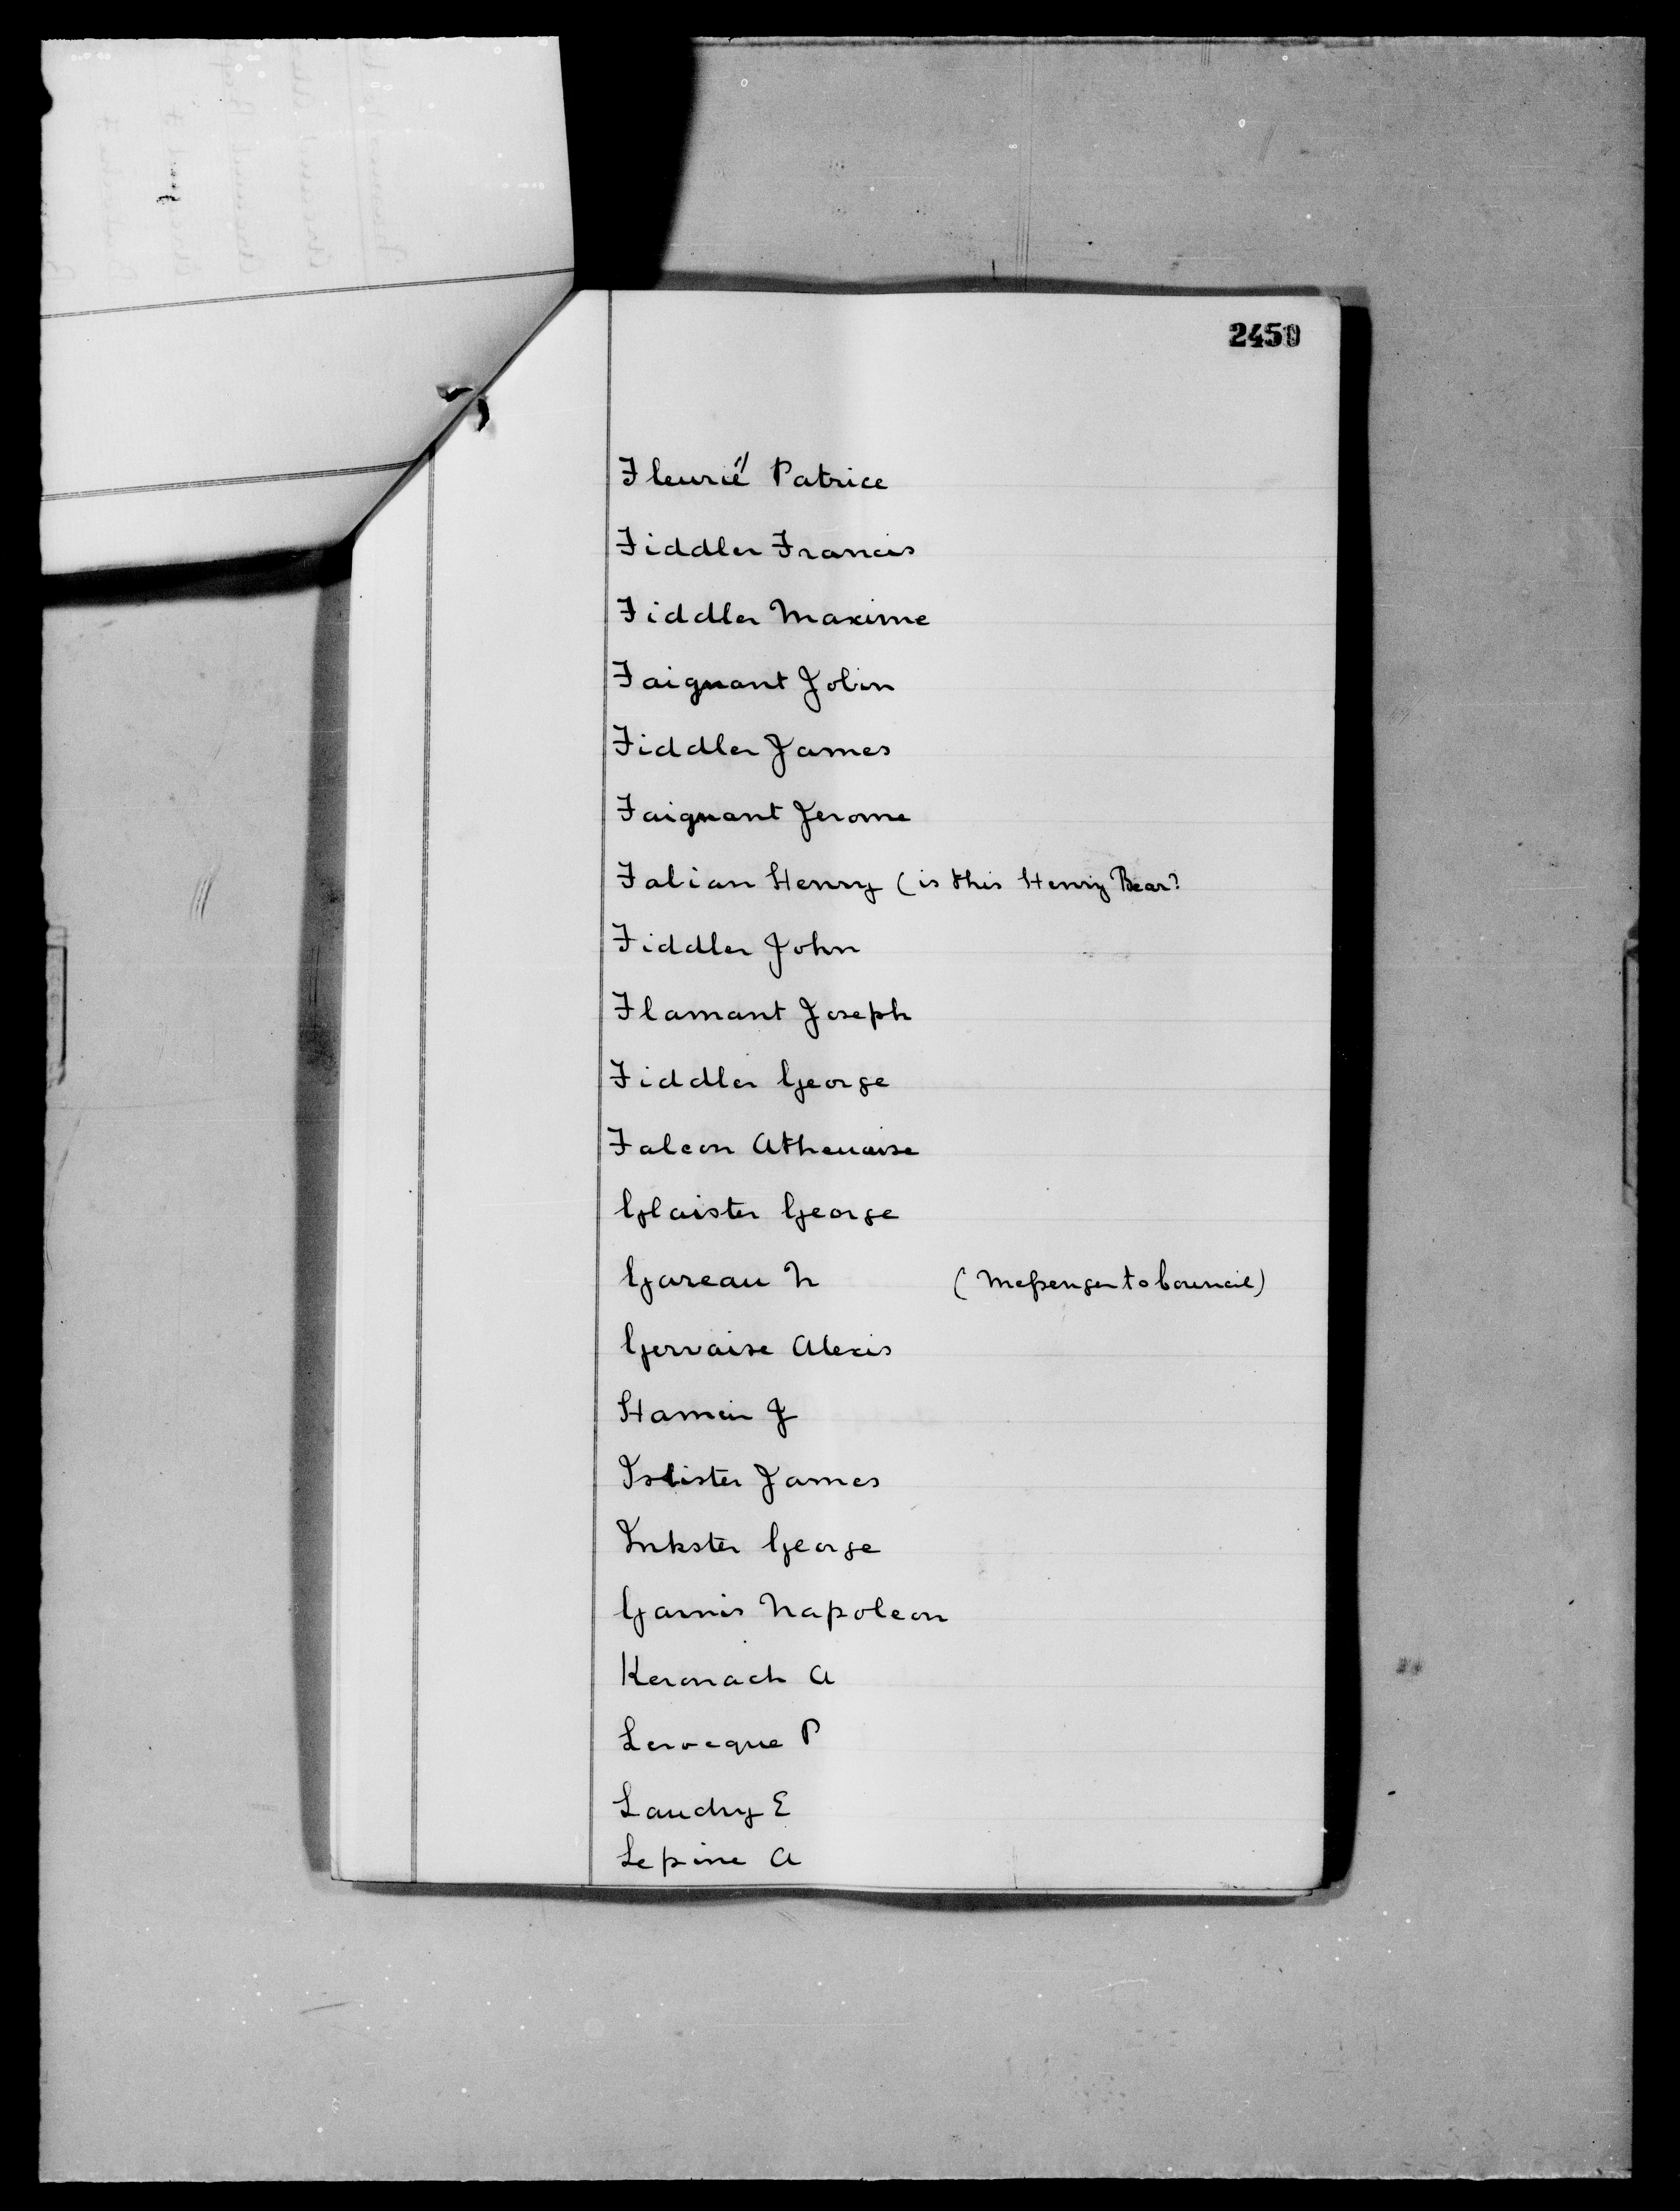 2450
Fleurié Patrice
Fiddler Francis
Fiddler Maxime
Faignant Jobin
Fiddler James
Faignant Jerome
Fabian Henry (is this Henry Bear?
Fiddler John
Flamant Joseph
Fiddler George
Falcon Athenaise
Glaister George
Gareau N (Messenger to Council)
Gervaise Alexis
Hamein J
Isbister James
Inkster George
Garnis Napoleon
Keronach A
Larocque P
Landry E
Lepine A